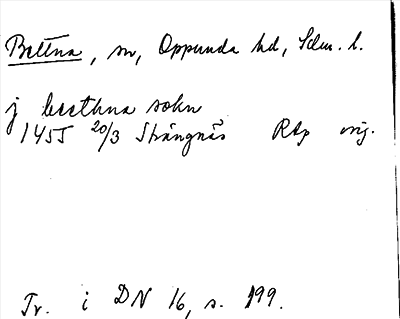 Bettna, sn, Oppunda hd, Sdm. l.
j beethna sokn
1455 20/3 Strängnäs Rap orig.
Tr. i DN 16, s. 199.